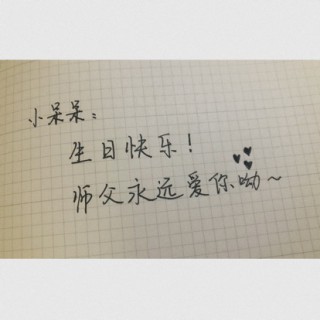 小呆呆：
生日快乐！
师父永远爱你呦～